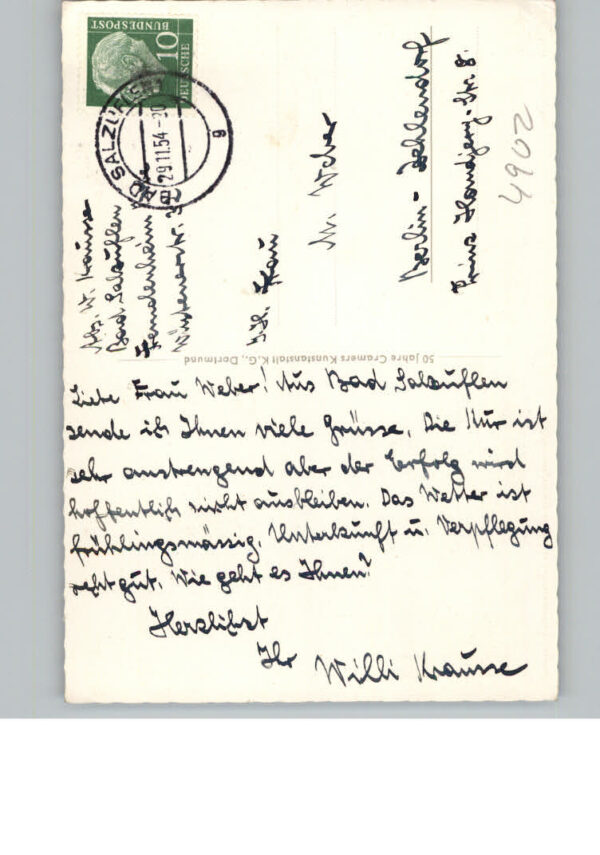 DEUTSCHE
BUNDESPOST
10
BAD SALZUFLEN
29.11.54-20
g
Abs. W. Krause
Bad Salzuflen
Fremdenheim
Wüstenerstr.
Frau
M. Weber
Berlin-Zehlendorf
Prinz Handjery-Str. 8.
4902
50 Jahre Cramers Kunstanstalt K.G., Dortmund
Liebe Frau Weber! Aus Bad Salzuflen
sende ich Ihnen viele Grüsse. Die Kur ist
sehr anstrengend aber der Erfolg wird
hoffentlich nicht ausbleiben. Das Wetter ist
frühlingsmässig. Unterkunft u. Verpflegung
recht gut. Wie geht es Ihnen?
Herzlichst
Ihr Willi Krause